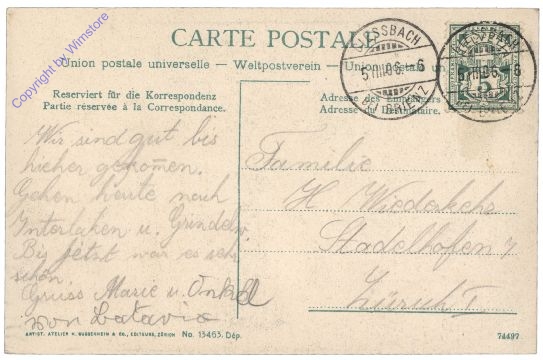 CARTE POSTALE
Union postale universelle – Weltpostverein – Union postale un
Reserviert für die Korrespondenz
Partie réservée à la Correspondance.
Adresse des Empfängers
Adresse du Destinataire.
GIESSBACH
5.III.06.-6
BRIENZ
GIESSBACH
5.III.06.-6
5
Wir sind gut bis
hieher gekommen.
Gehen heute nach
Interlaken u. Grindelw.
Big jetzt war es sehr
schön.
Gruss Marie u. Onkel
von Batavia
Familie
H. Wiederkehr
Stadelhofen 7
Zürich I
ARTIST. ATELIER H. GUGGENHEIM & CO., EDITEURS, ZÜRICH No. 13463. Dép.
74497
Copyright by Wimstore